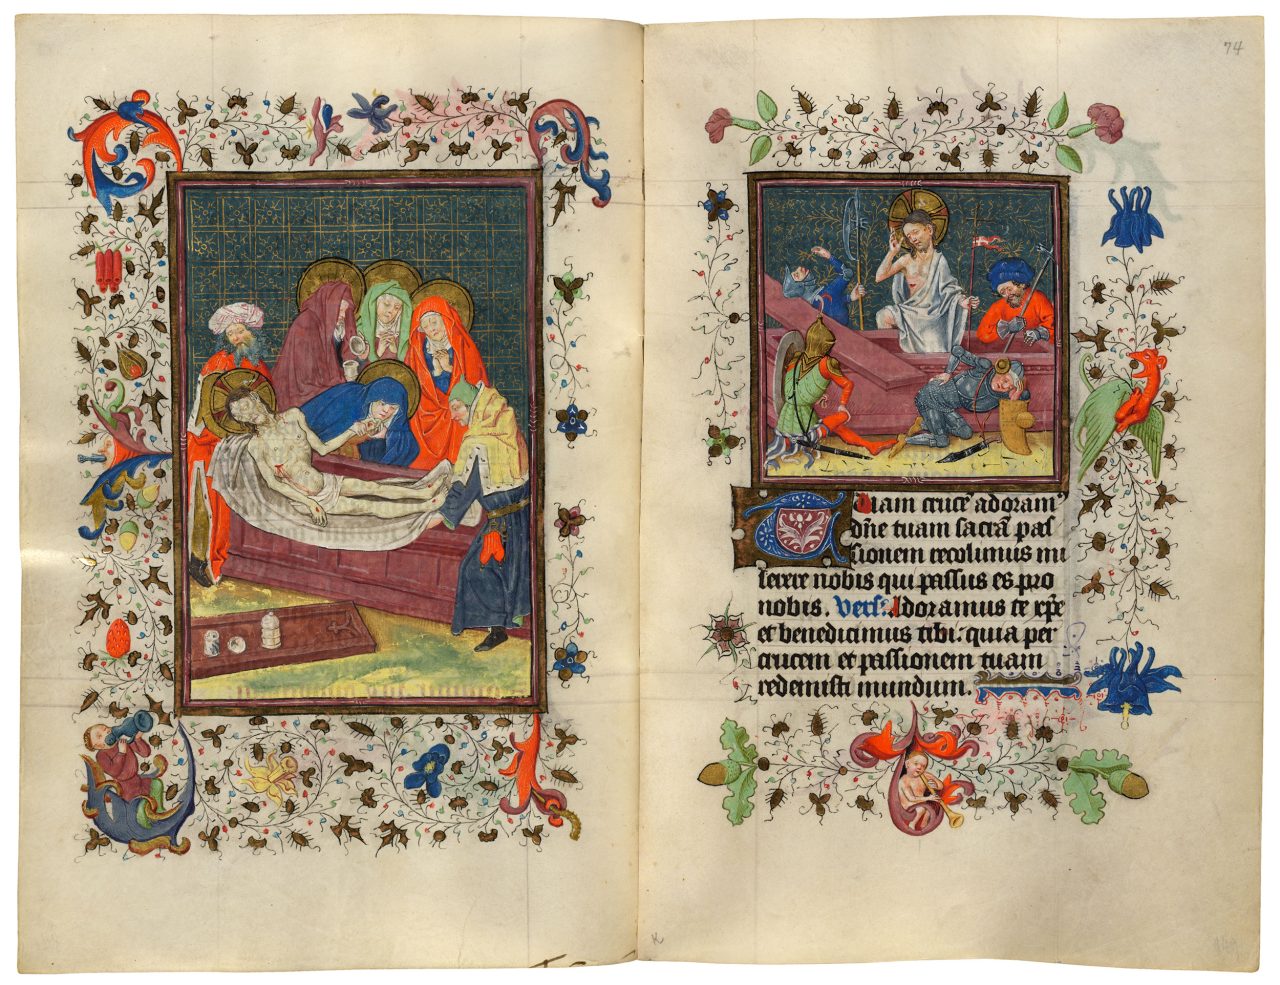 74
Tuam crucē adoram᷒
dn̄e tuam sacrā pas
sionem recolimus mi
serere nobis qui passus es pro
nobis. Vers: Adoramus te xpē
et benedicimus tibi. quia per
crucem et passionem tuam
redemisti mundum.
K